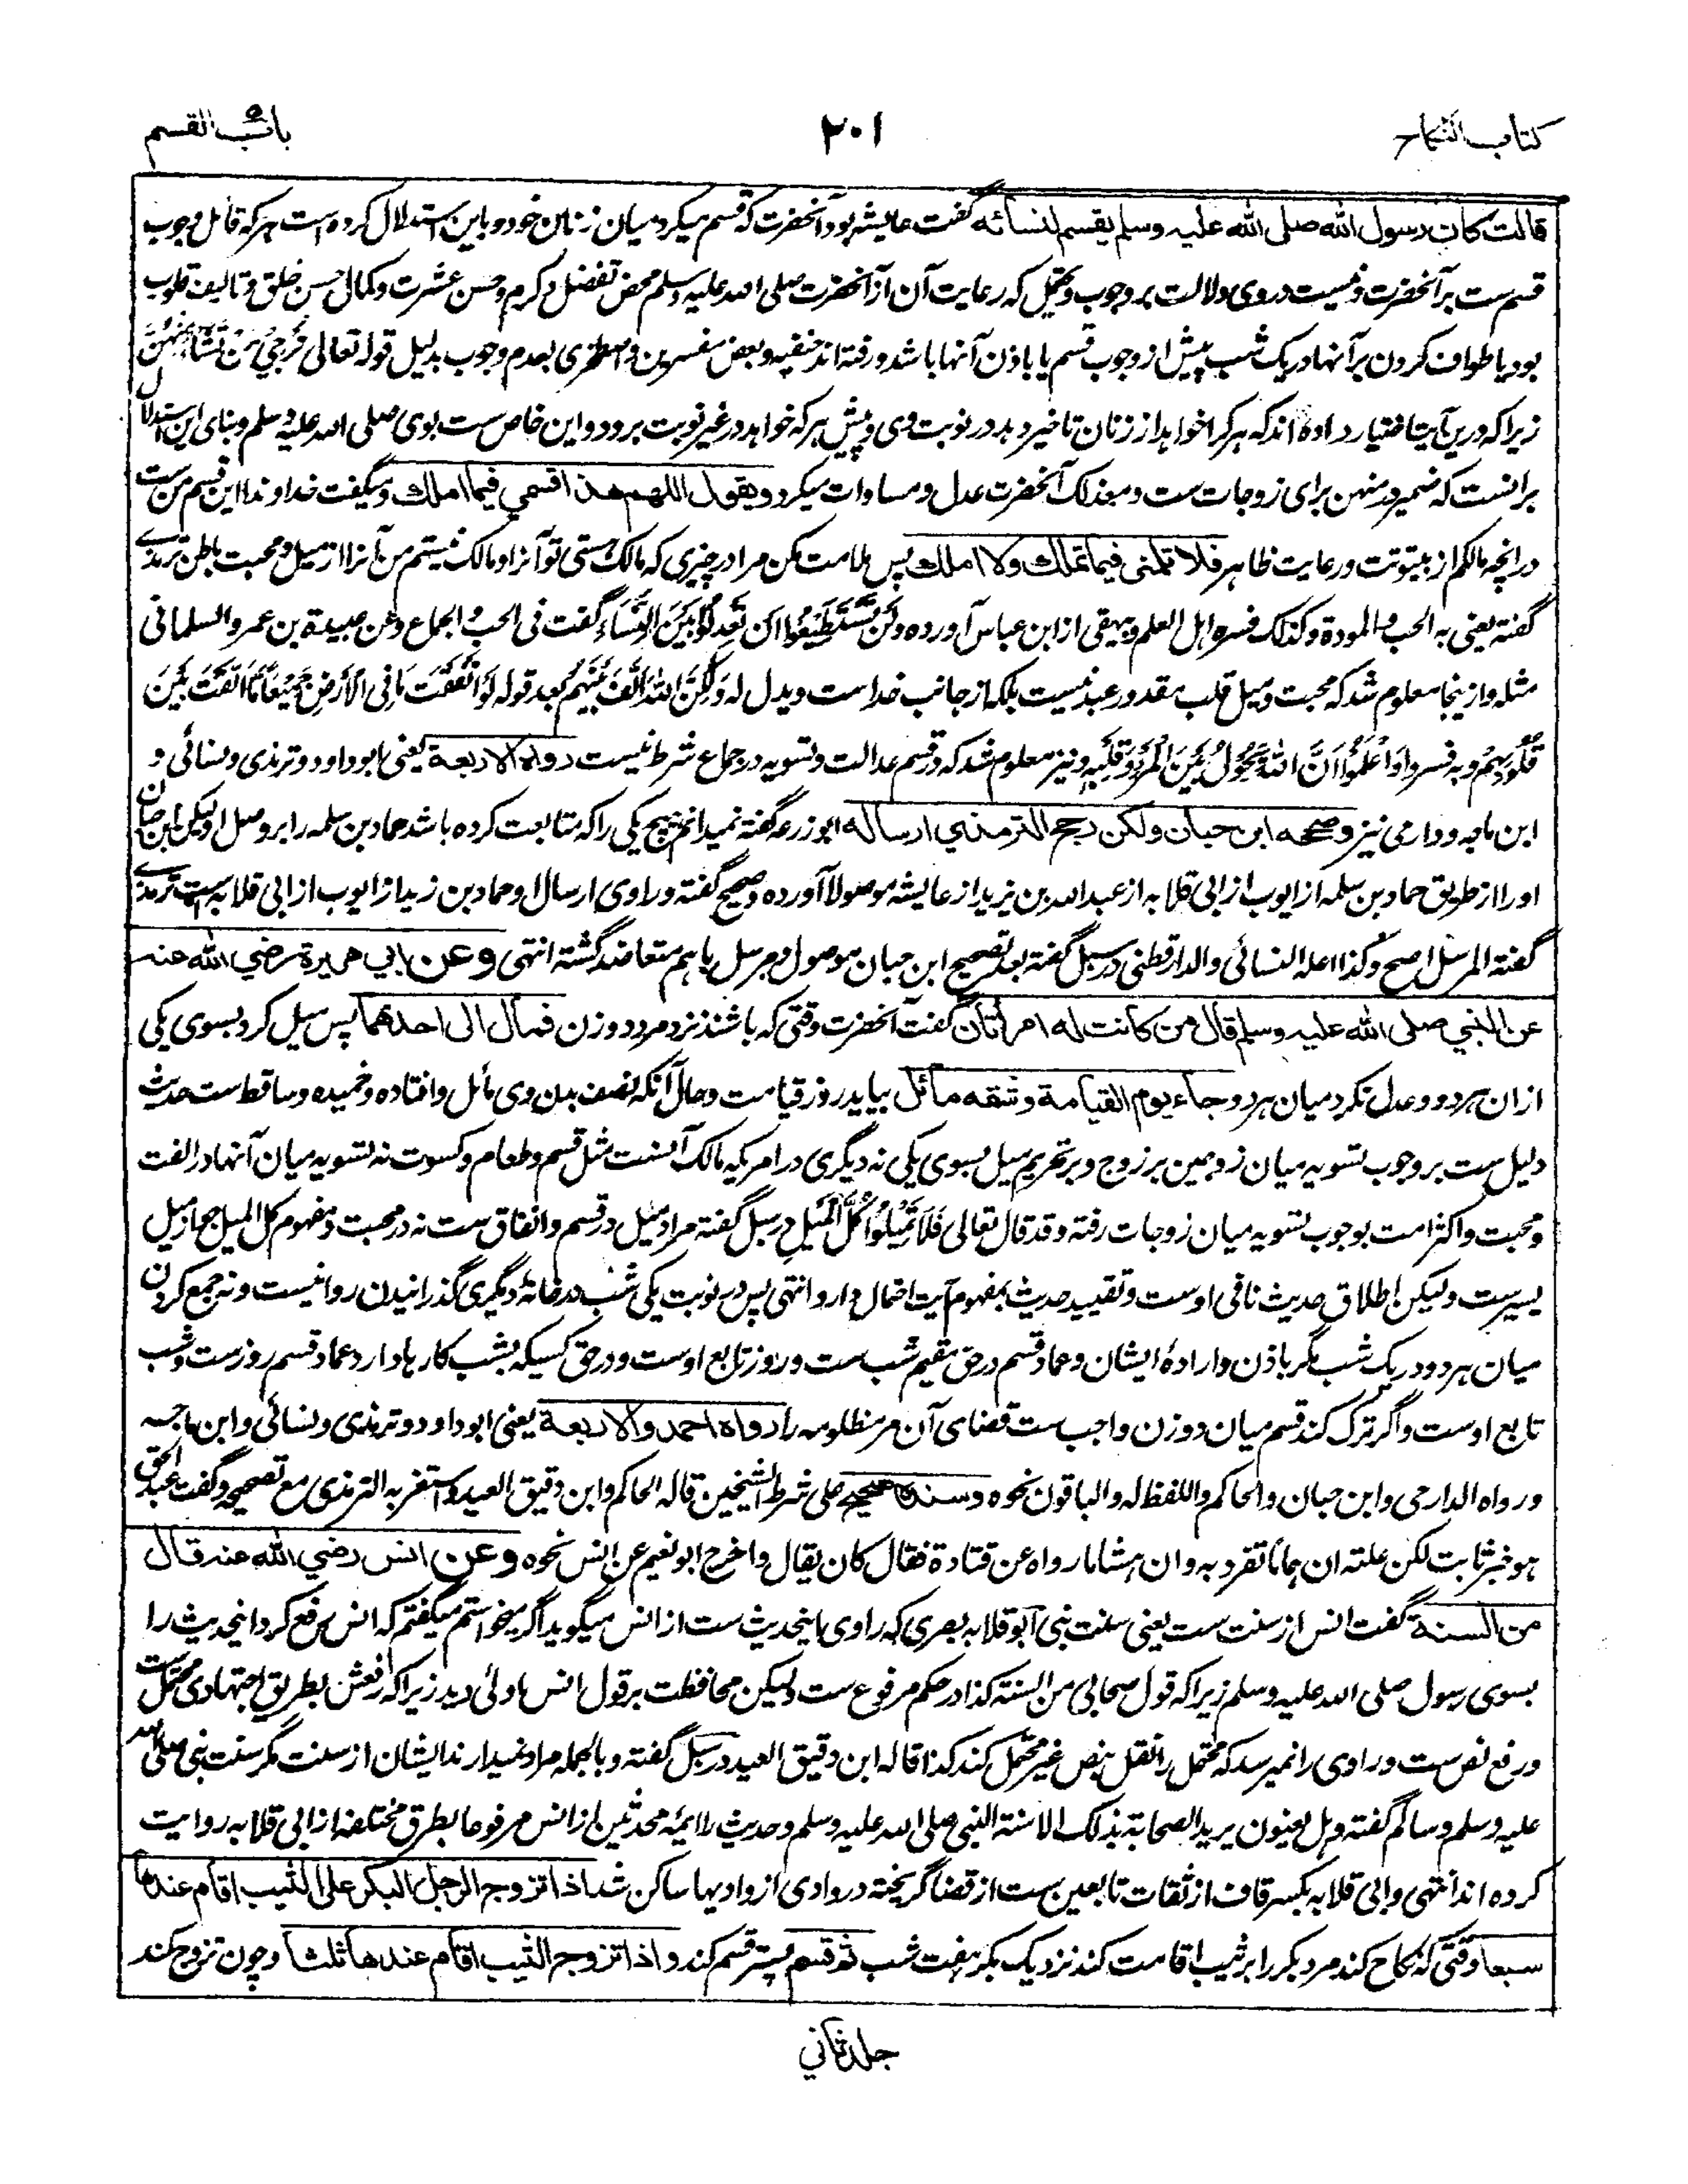 کتاب النکاح
٢٠١
باب القسم
قالت کان رسول الله صلی الله علیه وسلم یقسم لنسائه گفت عایشه بود آنحضرت که قسم میکرد میان زنان خود و باین استدلال کرده است هر که قائل وجوب
قسم ست بر آنحضرت و نیست در وی دلالت بر وجوب و محتمل که رعایت آن از آنحضرت صلی الله علیه وسلم محض تفضل و کرم و حسن عشرت و کمال حسن خلق و تالیف قلوب
بود یا طواف کردن بر آنها در یک شب پیش از وجوب قسم یا باذن آنها باشد و رفته اند حنفیه و بعض مفسرین و اصطخری بعدم وجوب بدلیل قوله تعالی تُرْجِیْ مَنْ تَشَآءُ مِنْهُنَّ
زیرا که درین آیت اختیار داده اند که هر کرا خواهد از زنان تاخیر دهد در نوبت وی و پیش هر که خواهد در غیر نوبت برود و این خاص ست بوی صلی الله علیه وسلم و بنای این استدلال
برانست که ضمیر در منهن برای زوجات ست و معذلک آنحضرت عدل و مساوات میکرد و یقول اللهم هذا قسمی فیما املك و میگفت خداوندا این قسم من ست
در انچه مالکم از بیتوتت و رعایت ظاهر فلا تلمنی فیما تملك ولا املك پس ملامت مکن مرا در چیزی که مالک هستی تو آنرا و مالک نیستم من آنرا از میل و محبت باطن ترمذی
گفته یعنی به الحب والمودة و کذلک فسره اهل العلم و بیهقی از ابن عباس آورده وَلَنْ تَسْتَطِیْعُوْا اَنْ تَعْدِلُوْا بَیْنَ النِّسَآءِ گفت فی الحب والجماع و عن عبیدة بن عمرو السلمانی
مثله و ازینجا معلوم شد که محبت و میل قلب مقدور عبد نیست بلکه از جانب خدا ست و یدل له وَلٰکِنَّ اللهَ اَلَّفَ بَیْنَهُمْ بعد قوله لَوْ اَنْفَقْتَ مَا فِی الْاَرْضِ جَمِیْعًا مَّا اَلَّفْتَ بَیْنَ
قُلُوْبِهِمْ و به فسر وَاعْلَمُوْا اَنَّ اللهَ یَحُوْلُ بَیْنَ الْمَرْءِ وَقَلْبِهِ و نیز معلوم شد که در قسم عدالت و تسویه در جماع شرط نیست رواه الاربعة یعنی ابوداود و ترمذی و نسائی و
ابن ماجه و دارمی نیز و صححه ابن حبان ولکن رجح الترمذي ارساله ابوزرعه گفته نمیدانم هیچ یکی را که متابعت کرده باشد حماد بن سلمه را بر وصل او لیکن ابن حبان
او را از طریق حماد بن سلمه از ایوب از ابی قلابه از عبدالله بن یزید از عایشه موصولا آورده و صحیح گفته و راوی ارسال او حماد بن زید از ایوب از ابی قلابه است ترمذی
گفته المرسل اصح و کذا اعله النسائی والدارقطنی در سبل گفته بعد تصحیح ابن حبان موصول و مرسل باهم متعاضد گشته انتهی وعن ابي هریرة رضي الله عنه
عن النبي صلی الله علیه وسلم قال من کانت له امرأتان گفت آنحضرت وقتی که باشند نزد مرد دو زن فمال الی احدهما پس میل کرد بسوی یکی
ازان هر دو و عدل نکرد میان هر دو جاء یوم القیامة وشقه مائل بیاید روز قیامت و حال آنکه نصف بدن وی مائل و افتاده و خمیده و ساقط ست حدیث
دلیل ست بر وجوب تسویه میان زوجین بر زوج و بر تحریم میل بسوی یکی نه دیگری در امریکه مالک آنست مثل قسم و طعام و کسوت نه تسویه میان آنها در الفت
و محبت و اکثر امت بوجوب تسویه میان زوجات رفته و قد قال تعالی فَلَا تَمِیْلُوْا کُلَّ الْمَیْلِ در سبل گفته مراد میل در قسم و انفاق ست نه در محبت و مفهوم کل المیل جواز میل
یسیر ست و لیکن اطلاق حدیث نافی اوست و تقیید حدیث بمفهوم آیت احتمال دارد انتهی پس در نوبت یکی شب در خانهٔ دیگری گذرانیدن روا نیست و نه جمع کردن
میان هر دو در یک شب مگر باذن و ارادهٔ ایشان و عماد قسم در حق مقیم شب ست و روز تابع اوست و در حق کسیکه بشب کارها دارد عماد قسم روز ست و شب
تابع اوست و اگر ترک کند قسم میان دو زن واجب ست قضای آن مر مظلومه را رواه احمد والاربعة یعنی ابوداود و ترمذی و نسائی و ابن ماجه
و رواه الدارمی وابن حبان والحاکم واللفظ له والباقون نحوه وسنده صحیح علی شرط الشیخین قاله الحاکم وابن دقیق العید و استغربه الترمذی مع تصحیحه و گفت عبدالحق
هو خبر ثابت لکن علته ان هماما تفرد به وان هشاما رواه عن قتادة فقال کان یقال واخرج ابونعیم عن انس نحوه وعن انس رضي الله عنه قال
من السنة گفت انس از سنت ست یعنی سنت نبی ابوقلابه بصری که راوی اینحدیث ست از انس میگوید اگر میخواستم میگفتم که انس رفع کرد اینحدیث را
بسوی رسول صلی الله علیه وسلم زیرا که قول صحابی من السنة کذا در حکم مرفوع ست و لیکن محافظت بر قول انس اولی دید زیرا که رفعش بطریق اجتهادی محتمل ست
و رفع نص ست و راوی را نمیرسد که محتمل را نقل بنص غیر محتمل کند کذا قاله ابن دقیق العید در سبل گفته و بالجمله مراد نمیدارند ایشان از سنت مگر سنت نبی صلی الله
علیه وسلم و سالم گفته وهل یعنون یرید الصحابة بذلک الا سنة النبی صلی الله علیه وسلم و حدیث را ایمهٔ محدثین از انس مرفوعا بطرق مختلفه از ابی قلابه روایت
کرده اند انتهی و ابی قلابه بکسر قاف از ثقات تابعین ست از قضا گریخته در وادی از وادیها ساکن شد اذا تزوج الرجل البکر علی الثیب اقام عندها
سبعا وقتی که نکاح کند مرد بکر را بر ثیب اقامت کند نزدیک بکر هفت شب ثم قسم پستر قسم کند و اذا تزوج الثیب اقام عندها ثلثا و چون تزوج کند
جلد ثاني